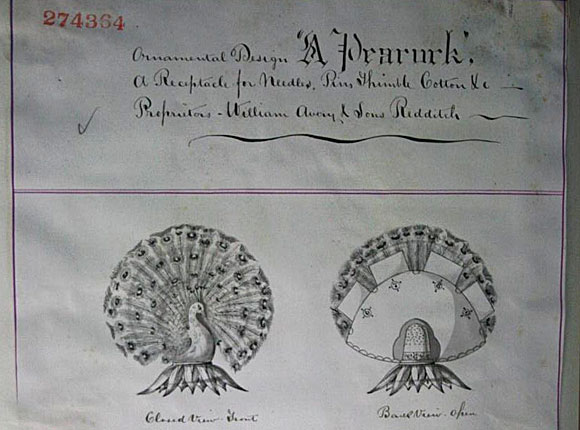 274364
Ornamental Design "A Peacock".
A Receptacle for Needles, Pins, Thimble Cotton &c —
Proprietors - William Avery & Sons Redditch —
Closed View - Front
Back View - Open